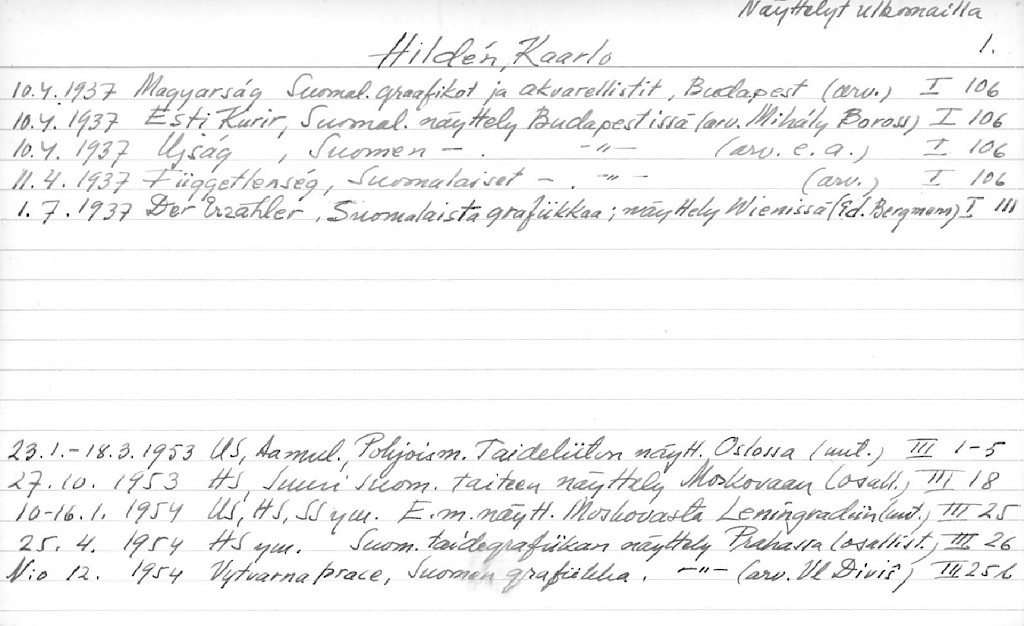 Näyttelyt ulkomailla
1.
Hildén, Kaarlo
10.4.1937 Magyarság Suomal. graafikot ja akvarellistit, Budapest (arv.) I 106
10.4.1937 Esti Kurir, Suomal. näyttely Budapestissä (arv. Mihály Boross) I 106
10.4.1937 Ujság, Suomen – . –"– (arv. e.a.) I 106
11.4.1937 Függetlenség, Suomalaiset – . –"– (arv.) I 106
1.7.1937 Der Erzähler, Suomalaista grafiikkaa; näyttely Wienissä (Ed. Bergmann) I 111
23.1.-18.3.1953 US, Aamul., Pohjoism. Taideliiton näytt. Oslossa (uut.) III 1-5
27.10.1953 HS, Suuri suom. taiteen näyttely Moskovaan (osall.) III 18
10-16.1.1954 US, HS, SS ym. E.m. näytt. Moskovasta Leningradiin (uut.) III 25
25.4.1954 HS ym. Suom. taidegrafiikan näyttely Prahassa (osallist.) III 26
N:o 12. 1954 Vytvarna prace, Suomen grafiikka. –"– (arv. Vl Diviš) III 25b